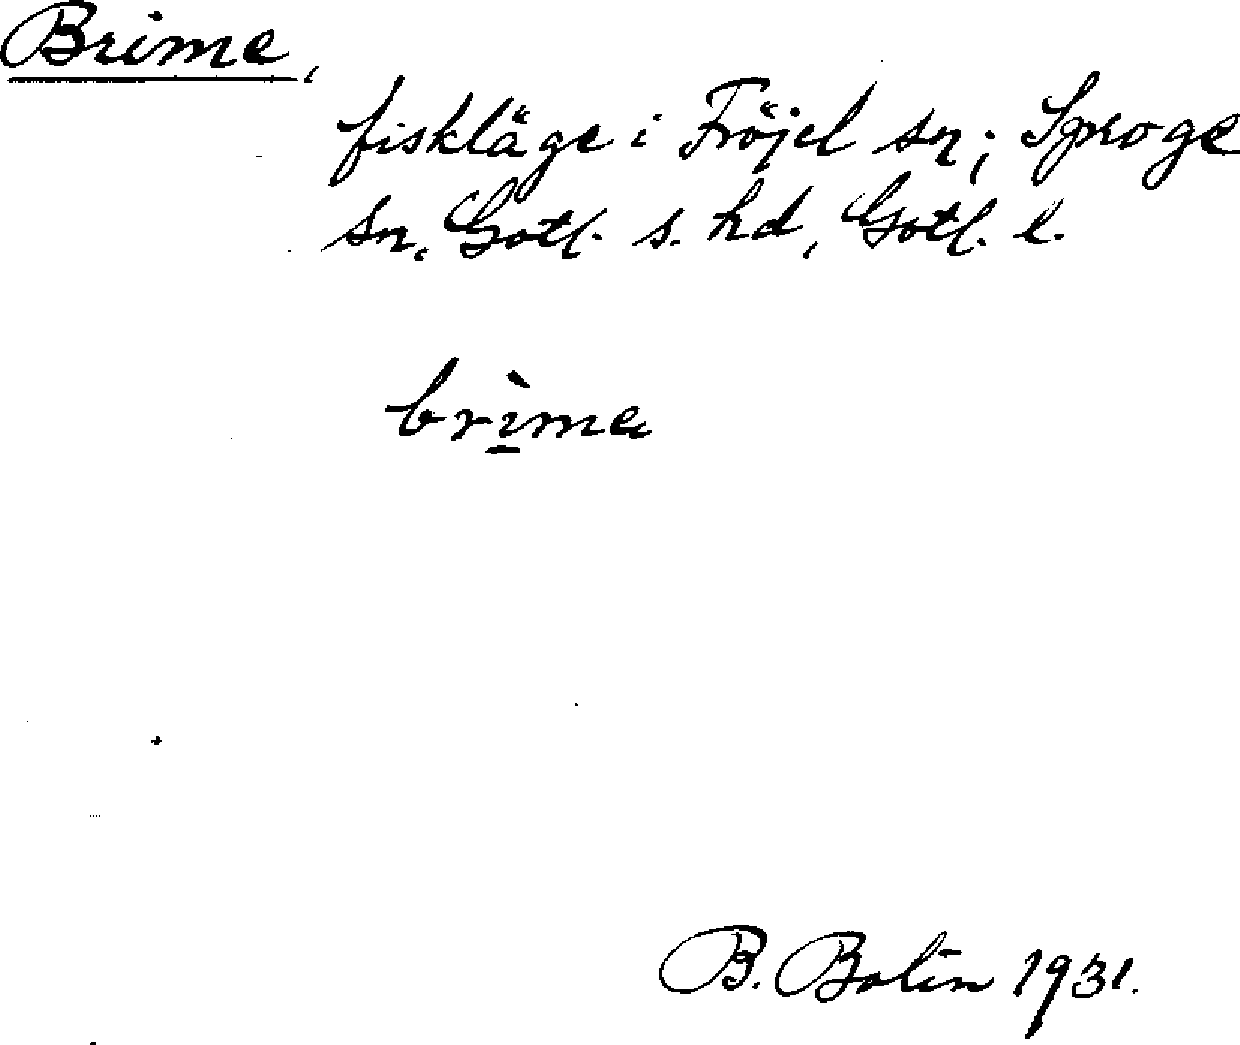 Brime,
fiskläge i Fröjel sn; Sproge
sn, Gotl. s. hd, Gotl. l.
brìme
B. Bolin 1931.